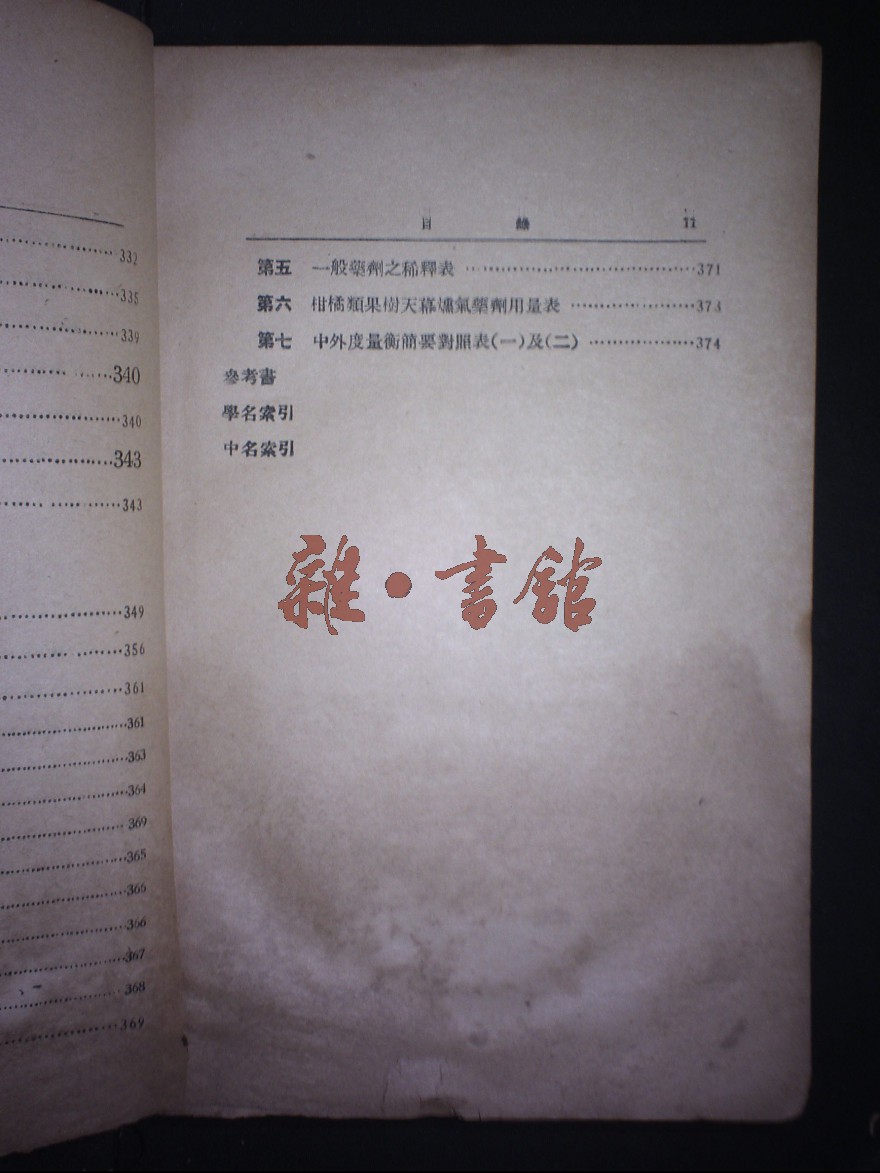 332
335
339
340
340
343
343
349
356
361
361
363
364
369
365
366
366
367
368
369
目 錄 11
第五 一般藥劑之稀釋表 371
第六 柑橘類果樹天幕燻氣藥劑用量表 373
第七 中外度量衡簡要對照表(一)及(二) 374
參考書
學名索引
中名索引
雜·書館